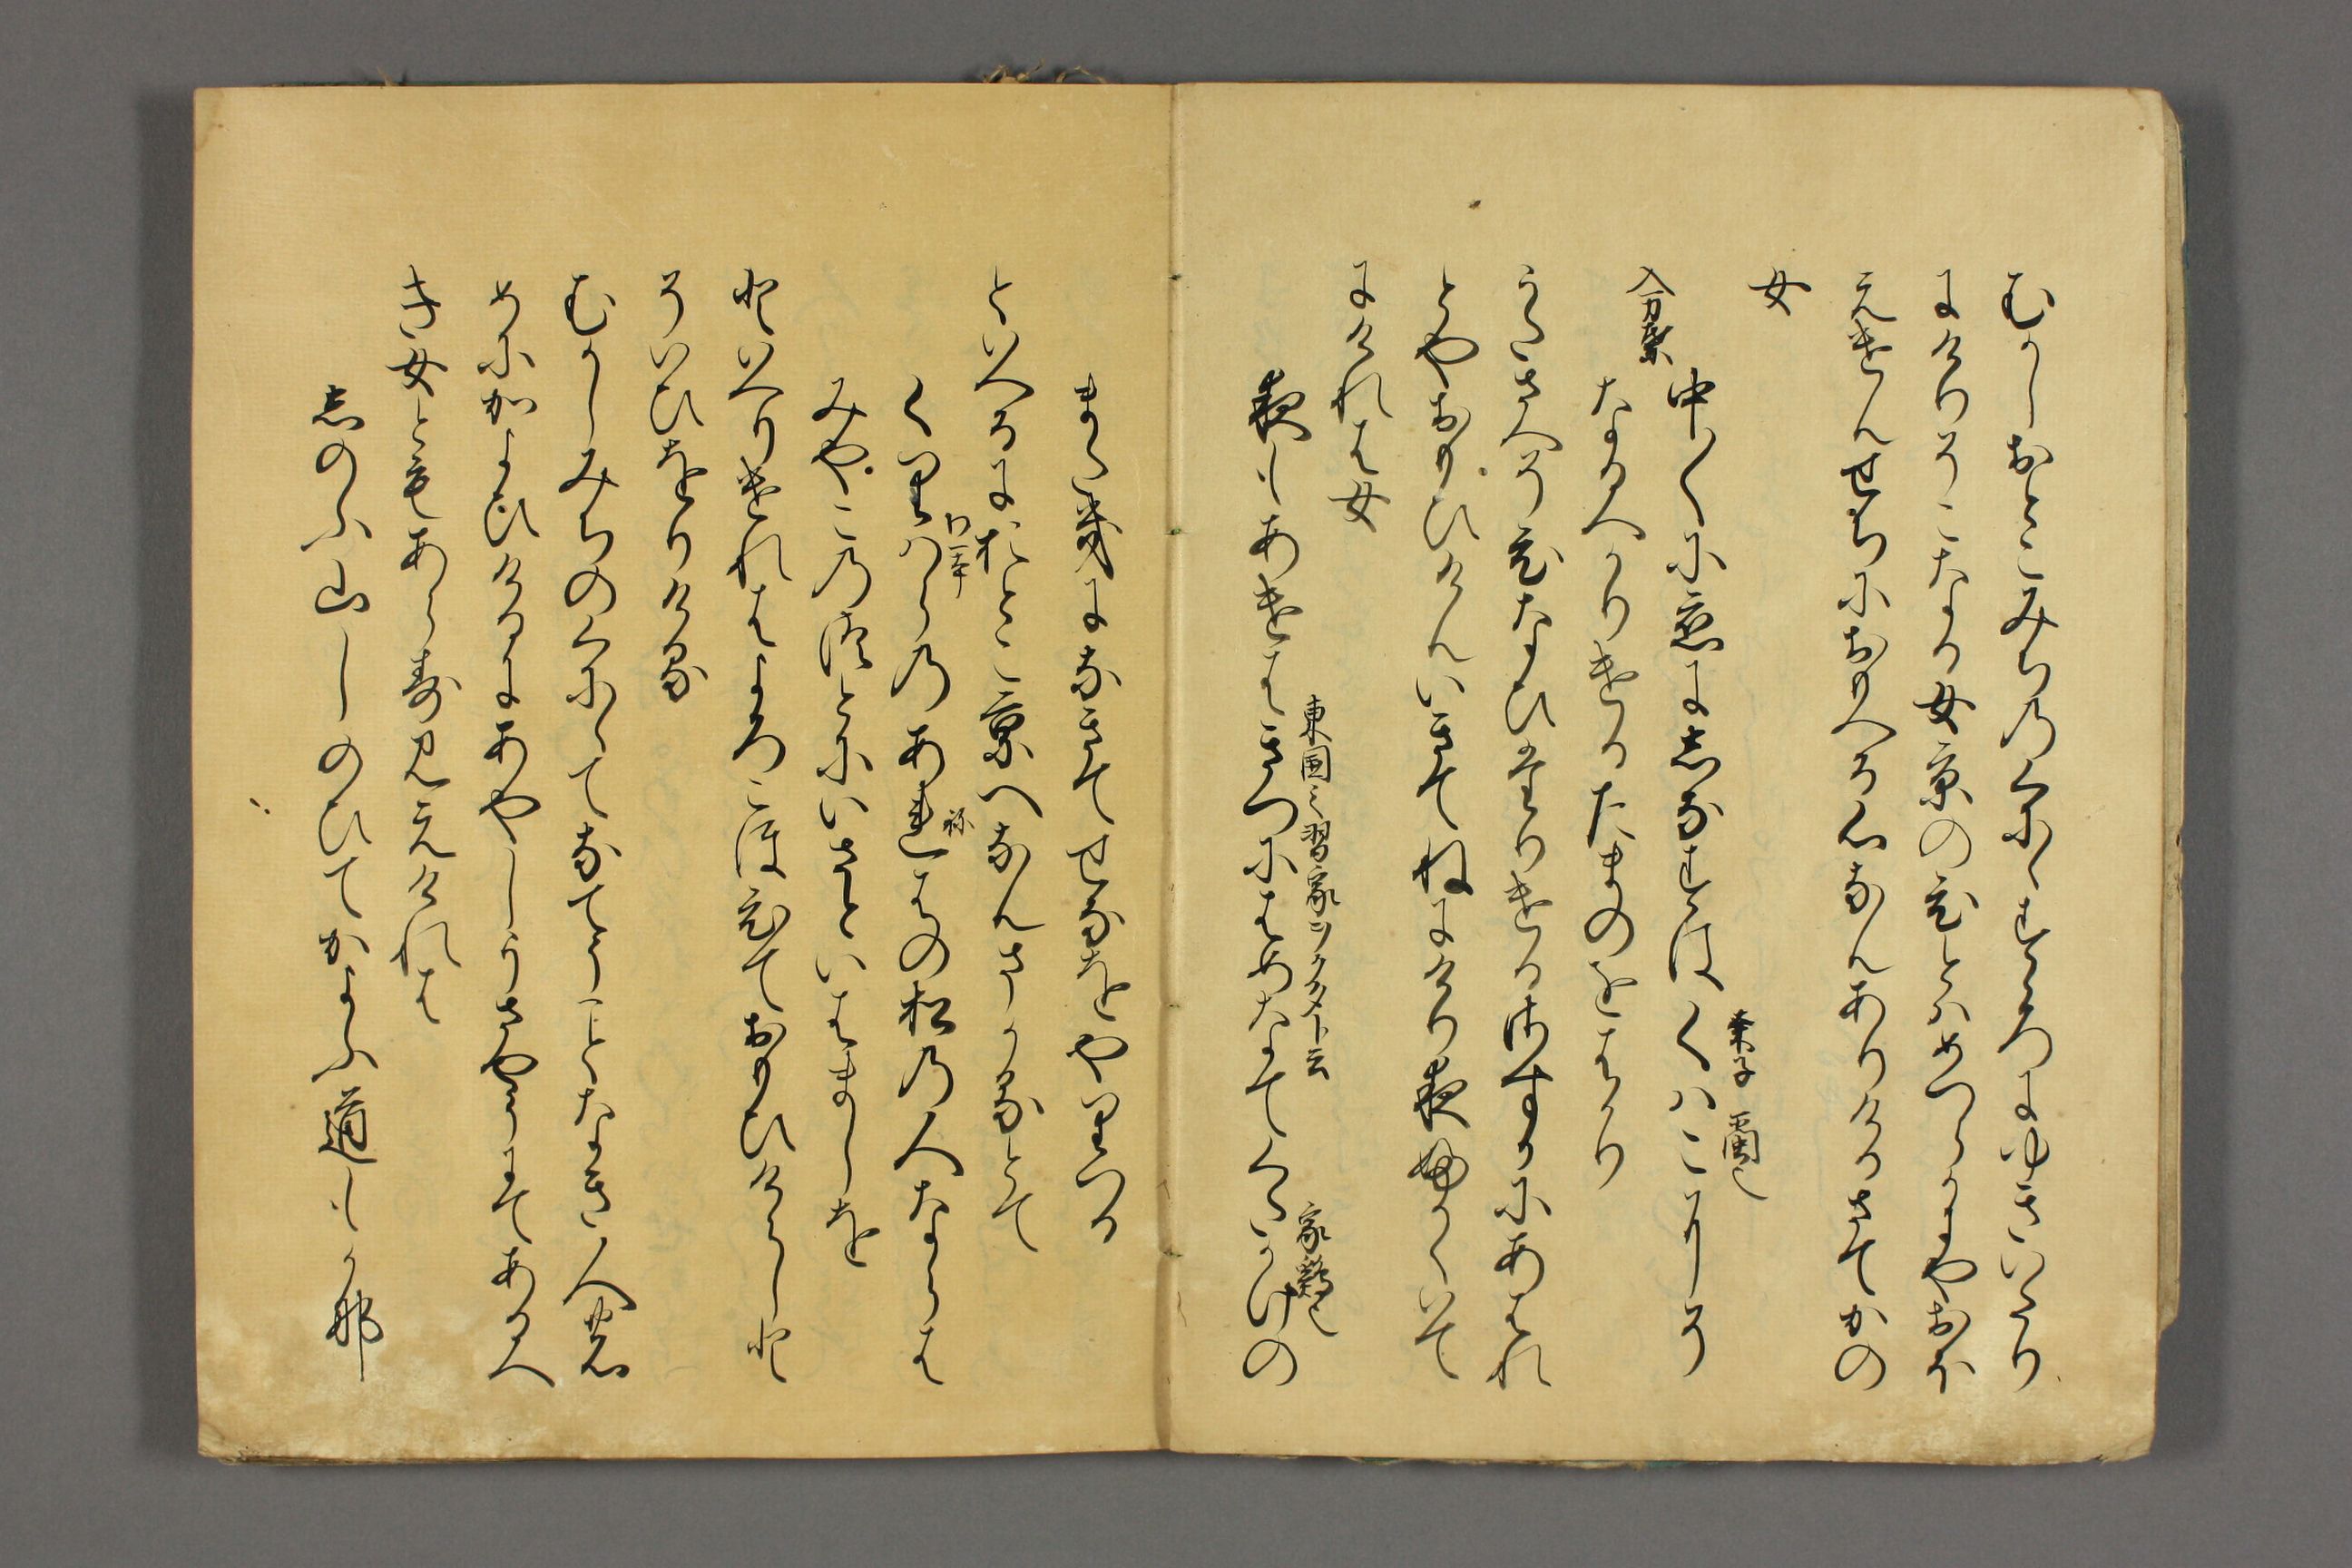 むかしおとこみちのくにゝすゝろにゆきいたり
にけりそこなる女京のひとはめつらかにやおほ
えけんせちにおもへる心なんありけるさてかの
女
桑子 蚕也
中〱に恋にしなすはくはこにそ
入万葉
なるへかりけるたまのをはかり
うたさへそひなひたりけるさすかにあはれ
とやおもひけんいきてねにけり夜ふかくいて
にけれは女
東国之習家ヲクタト云 家鶏也
夜もあけはきつにはめなてくたかけの
またきになきてせなをやりつる
といへるにおとこ京へなんまかるとて
くりはらのあれはの松の人ならは
みやこのつとにいさといはましを
といへりけれはよろこほひておもひけらしと
そいひをりける
むかしみちのくにゝてなてうことなき人の
めにかよひけるにあやしうさやうにてあるへ
き女ともあらす見えけれは
しのふ山しのひてかよふ道もかな